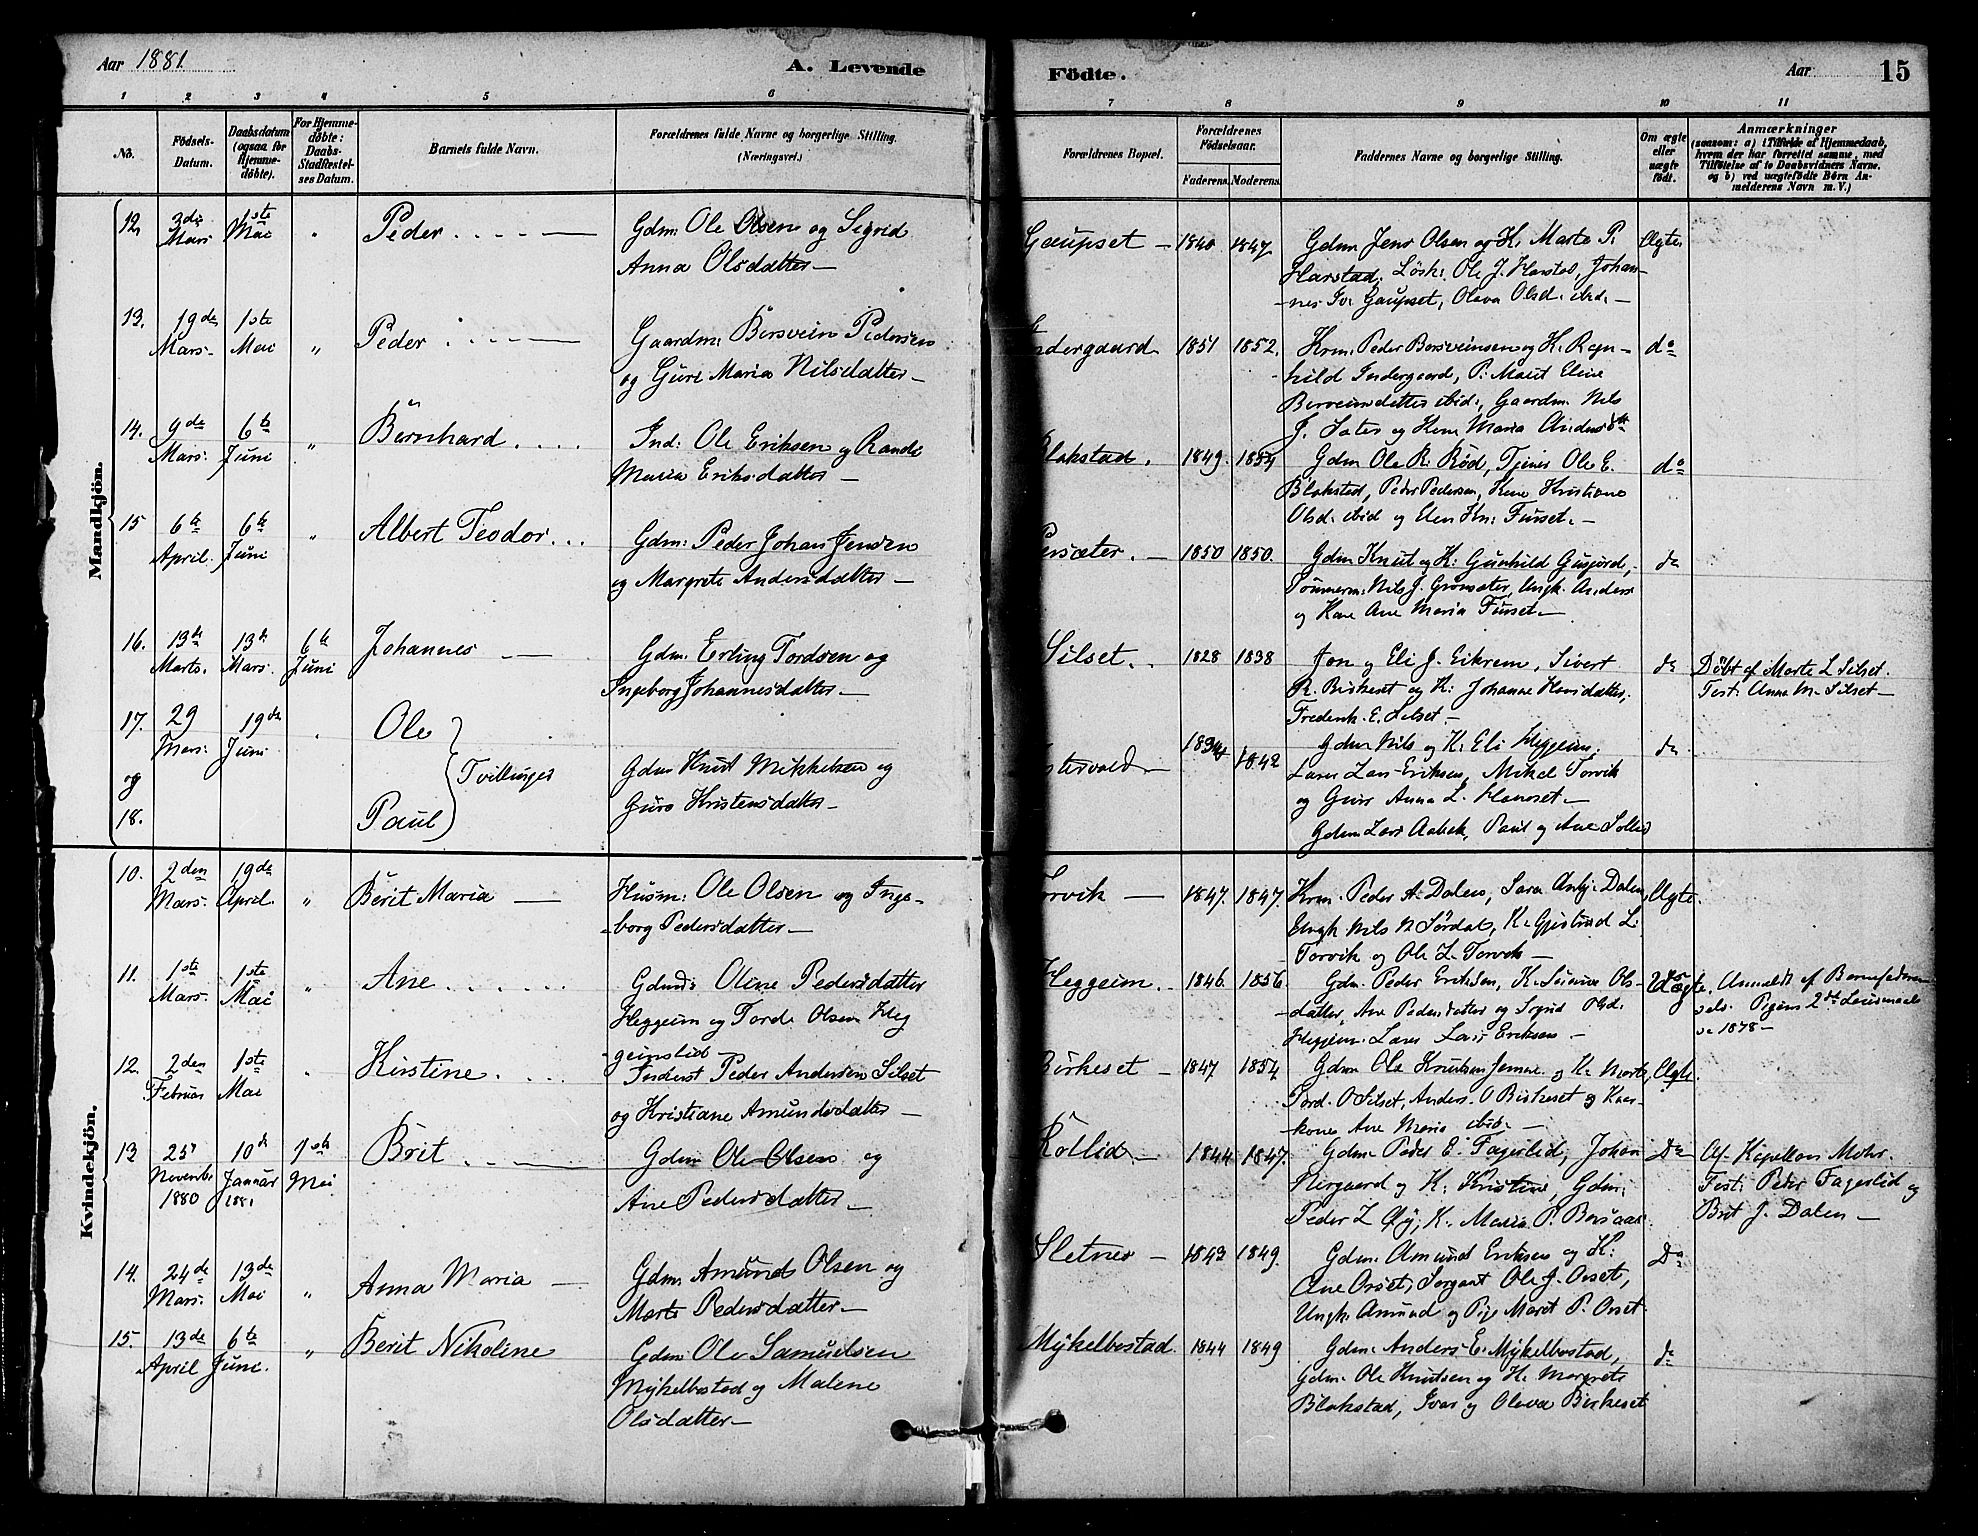 Aar 1881.
A. Levende
Födte.
Aar
15
1 2 3 4 5 6 7 8 9 10 11
No.
Födsels-Datum.
Daabsdatum (ogsaa for Hjemmedöbte).
For Hjemmedöbte: Daabs-Stadfæstelses Datum.
Barnets fulde Navn.
Forældrenes fulde Navne og borgerlige Stilling. (Næringsvei.)
Forældrenes Bopæl.
Forældrenes Födselsaar.
Faderens. Moderens.
Faddernes Navne og borgerlige Stilling.
Om ægte eller uægte födt.
Anmærkninger
(saasom: a) i Tilfælde af Hjemmedaab, hvem der har forrettet samme, med Tilföielse af to Daabsvidners Navne. og b) ved uægtefödte Börn Anmelderens Navn m. V.)
Mandkjön.
12 3de Mars 1ste Mai " Peder
Gdm: Ole Olsen og Sigrid
Anna Olsdatter —
Gaupset — 1840 1847
Gdm Jens Olsen og K. Marte P.
Harstad, Lösk: Ole J. Harstad, Johan-
nes Iv. Gaupset, Olava Olsd. ibid. —
Ægte
13. 19de Mars. 1ste Mai " Peder
Gaardm: Bersvein Pedersen
og Guri Maria Nilsdatter —
Indergaard 1851 1852.
Krm: Peder Bersveinsen og K. Ragn-
hild Indergaard, P: Marit Eline
Bersveinsdatter ibid:, Gaardm. Nils
J. Sæter og Kone Maria Andersdtr
do
14. 9de Mars. 6te Juni " Bernhard
Ind: Ole Eriksen og Rande
Maria Eriksdatter —
Blakstad. 1849. 1854
Gdm Ole R. Röd, Tjener Ole E.
Blakstad, Peder Pedersen, Kone Kristiane
Olsd. ibid og Elen Kn: Furset. —
do
15 6te April. 6te Juni " Albert Teodor
Gdm: Peder Johan Jensen
og Margrete Andersdatter —
Persæter. — 1850 1850.
Gdm Knut og K: Gunhild Gusjord,
Tömmerm: Nils J. Grönsæter, Ungk. Anders
og Kone Ane Maria Furset —
do
16. 13de Marts. 13de Mars. 6te Juni Johannes —
Gdm: Erling Tordsen og
Ingeborg Johannesdatter —
Silset. 1828 1838
Jon og Eli J. Eikrem, Sivert
R. Birkeset og K: Johanne Hansdatter,
Frederik E. Silset. —
do
Döbt af Marte L Silset.
Test: Anna M. Silset —
17. 29 Mars. 19de Juni . Ole
og Tvillinger
18. Paul
Gdm Knut Mikkelsen og
Guro Kristensdatter —
1834 1842
Gdm Nils og K: Eli Heggeim,
Lars Eriksen, Mikel Torvik
og Anna L. Hanset —
Gdm Lars Aabek, Paul og Ane Sollid
do
Kvindekjön.
10. 2den Mars. 19de April. " Berit Maria —
Husm: Ole Olsen og Inge-
borg Pedersdatter —
Torvik — 1847. 1847.
Krm. Peder A. Dalen, Sara Dalen,
Ungk Nils N Sördal, K. Gjertrud L.
Torvik og Ole L. Torvik —
Ægte.
11. 1ste Mars. 1ste Mai " Ane
Oline Pedersdatter
Heggeim og Tord Olsen Heg
geimslid —
Heggeim. 1846. 1856.
Gdm. Peder Eriksen, K. Ols-
datter, Ane Pedersdatter og Sigrid Olsd.
Heggeim. Lars Eriksen —
Uægte.
Anmeldt af Barnefaderen
selv. Pigens 2det Leiermaal
1878 —
12. 2den Februar 1ste Mai . Kirstine.
Inderst Peder Andersen Silset
og Kristiane Amundsdatter —
Birkeset — 1847 1854
Gdm Ole Knudsen og K.
Tord. O Silset, Anders O Birkeset og
Ane Maria ibid. —
Ægte.
13 25 Novembr 1880 10de Januar 1881 1ste Mai Brit
Gdm Ole Olsen og
Ane Pedersdatter —
Kollid. — 1844 1847.
Gdm. Peder E. Fagerlid, Johan
Nergaard og K: Kristine, Gdm:
Peder L Öÿ, K. Maria P. Bersaas.
Do
Af Kapellan Mohr.
Test: Peder Fagerlid og
Brit J. Dalen —
14. 24de Mars. 13de Mai " Anna Maria —
Gdm: Amund Olsen og
Marte Pedersdatter —
Sletnes — 1843 1849.
Gdm: Amund Eriksen og K:
Ane Orset, Sergant Ole J. Orset,
Ungk: Amund og Pige Maret P. Orset
Do
15. 13de April 6te Juni. " Berit Nikoline
Gdm: Ole Samuelsen
Mykelbostad og Malene
Olsdatter —
Mykelbostad 1844 1849
Gdm: Anders E. Mykelbostad,
Gdm. Ole Knutsen og K. Margrete
Blakstad, Ivar og Olava Birkeset
do